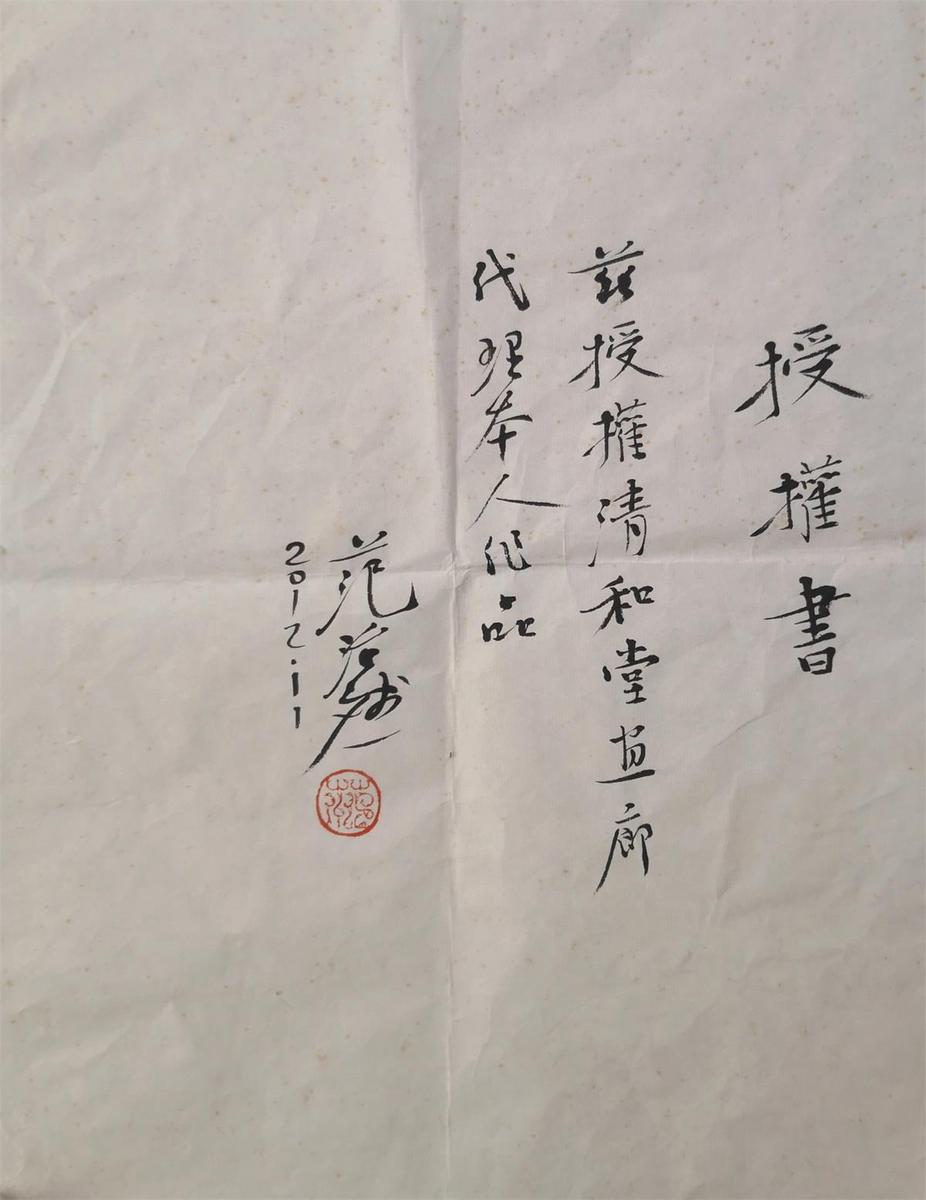 授權書
茲授權清和堂画廊
代理本人作品
范
2012.11